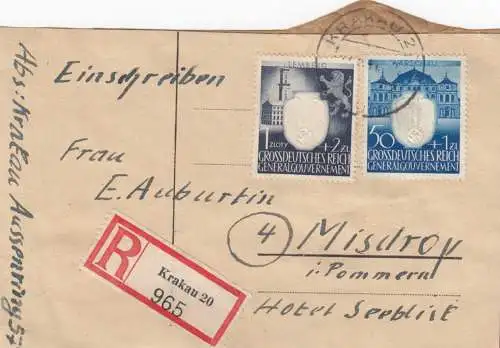 KRAKAU 2
Einschreiben
LEMBERG
WARSCHAU
1 ZLOTY +2 ZŁ
GROSSDEUTSCHES REICH
GENERALGOUVERNEMENT
50 +1 ZŁ
GROSSDEUTSCHES REICH
GENERALGOUVERNEMENT
Frau
E. Auburtin
④ Misdroy
i. Pommern
Hotel Seeblick
R
Krakau 20
965
Abs. Krakau Aussenring 57